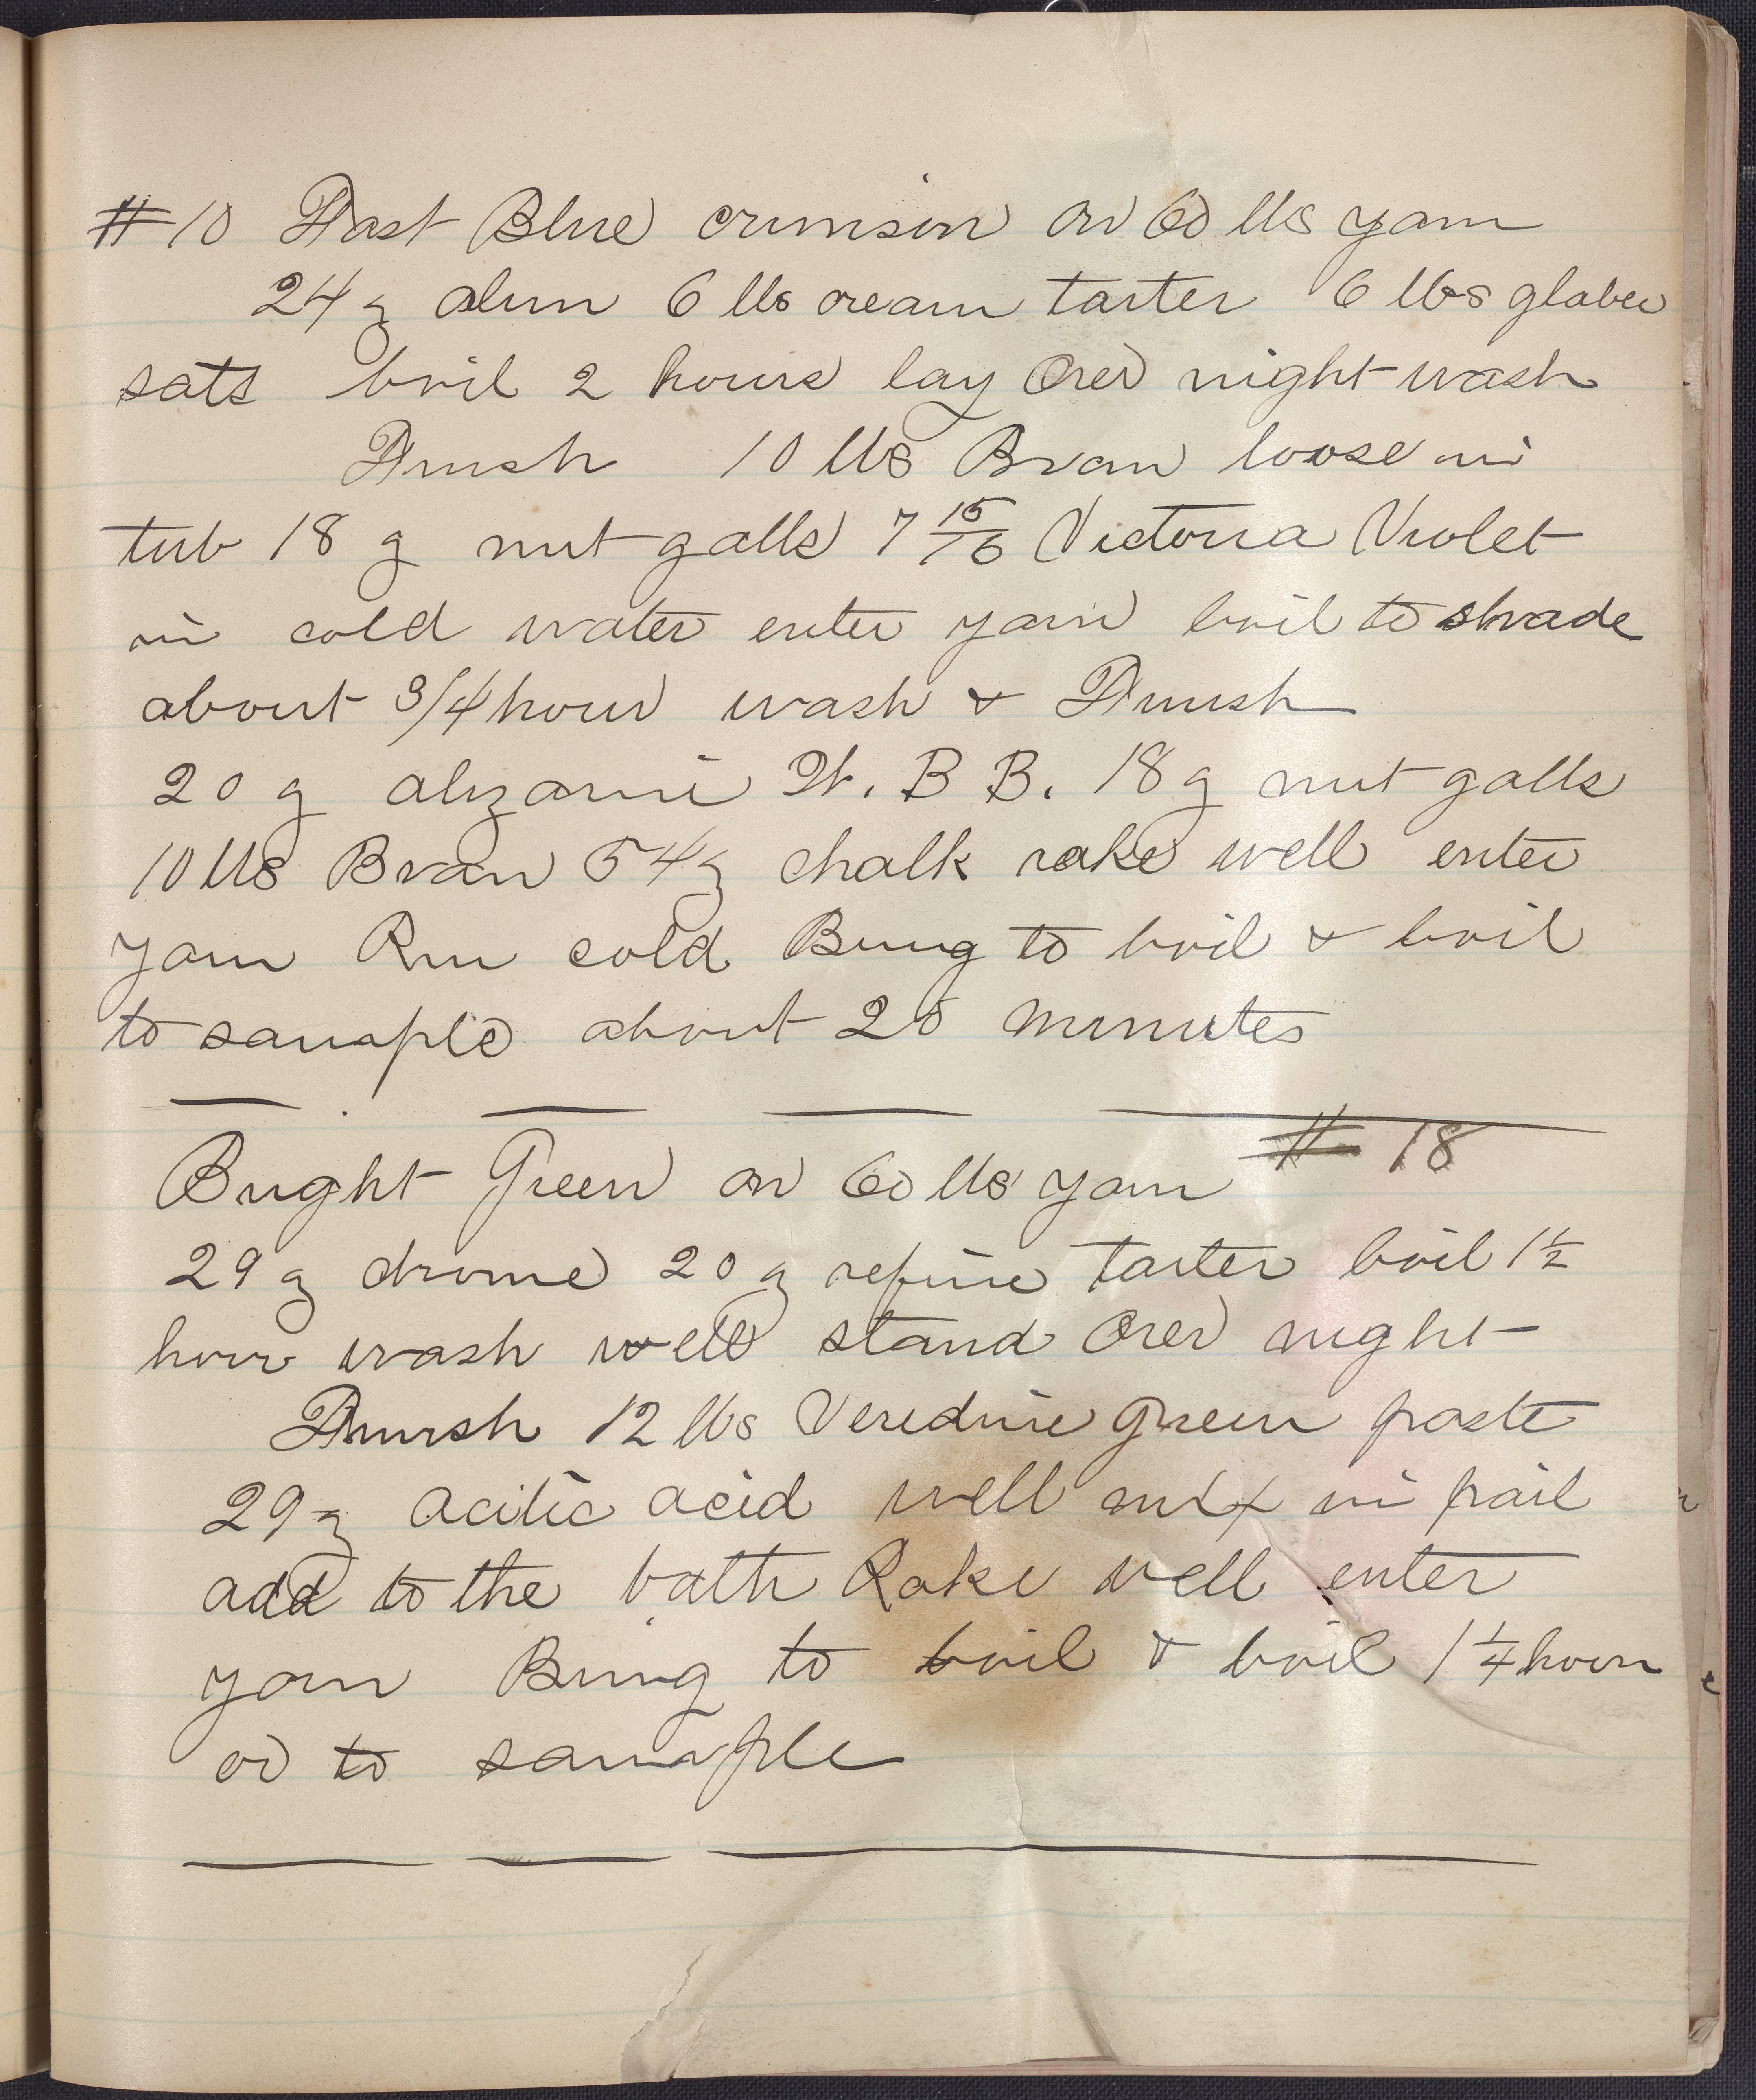 #10 Fast Blue crimson on 60 lbs yarn
24 ʒ alum 6 lbs cream tarter 6 lbs glaber
sats boil 2 hours lay over night wash
Finish 10 lbs Bran loose in
tub 18 ʒ nut galls 7 15/16 Victoria Violet
in cold water enter yarn boil to shade
about 3/4 hour wash & Finish
20 ʒ alizarin W. B B. 18 ʒ nut galls
10 lbs Bran 54 ʒ chalk rake well enter
yarn Run cold Bring to boil & boil
to sample about 25 minutes
Bright Green on 60 lbs yarn # 18
29 ʒ chrome 20 ʒ refine tarter boil 1 1/2
hour wash well stand over night
Finish 12 lbs Veredine green paste
29 ʒ acitic acid well mix in pail
add to the bath Rake well enter
yarn Bring to boil & boil 1 1/4 hour
or to sample